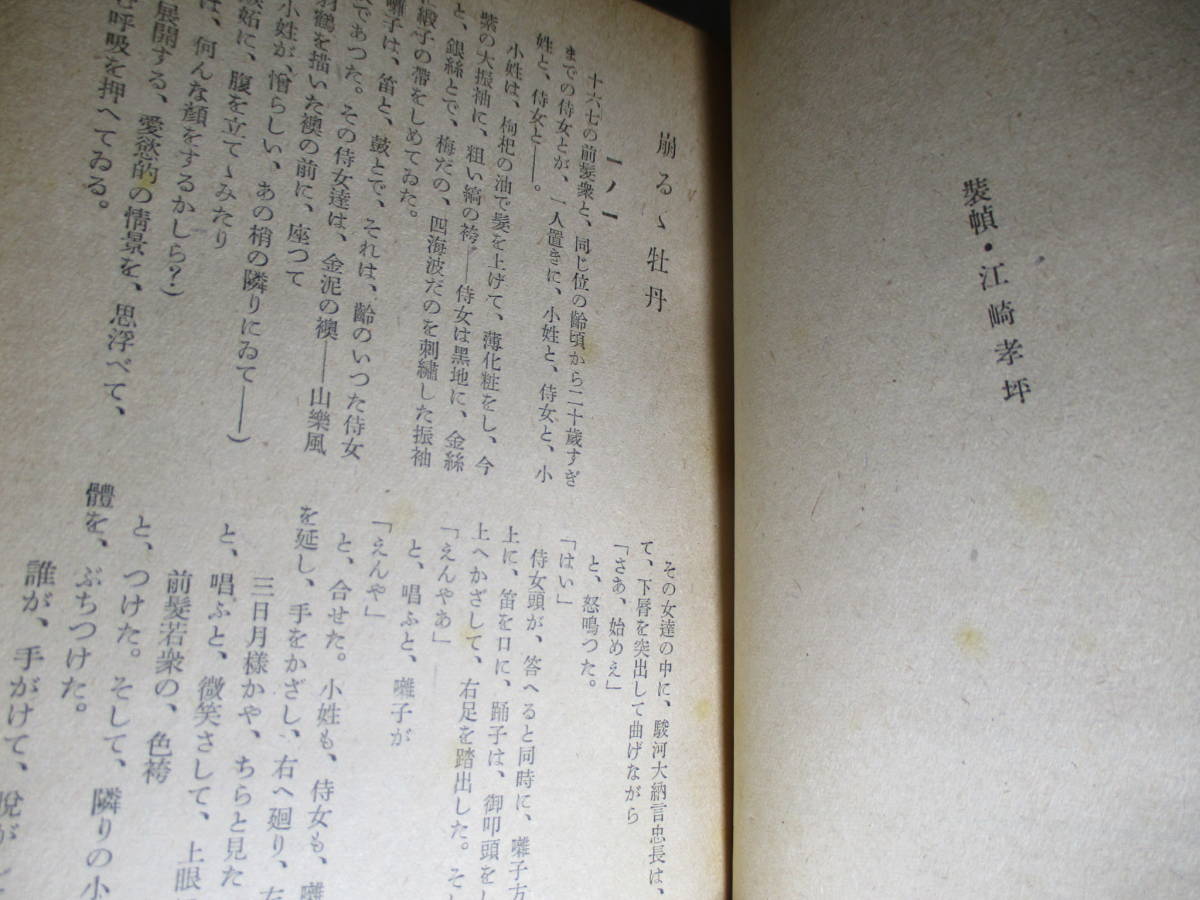 裝幀・江崎孝坪
崩るゝ牡丹
一ノ一
十六七の前髮衆と、同じ位の齡頃から二十歲すぎ
までの侍女とが、一人置きに、小姓と、侍女と、小
姓と、侍女と――。
小姓は、枸杞の油で髮を上げて、薄化粧をし、今
紫の大振袖に、粗い縞の袴――侍女は黑地に、金絲
と、銀絲とで、梅だの、四海波だのを刺繡した振袖
緞子の帶をしめてゐた。
囃子は、笛と、鼓とで、それは、齡のいつた侍女
であつた。その侍女達は、金泥の襖――山樂風
鶴を描いた襖の前に、座つて
小姓が、憎らしい、あの梢の隣りにゐて――)
妬に、腹を立てゝみたり
は、何んな顏をするかしら?)
展開する、愛慾的の情景を、思浮べて、
呼吸を押へてゐる。
その女達の中に、駿河大納言忠長は、
て、下唇を突出して曲げながら
「さあ、始めえ」
と、怒鳴つた。
「はい」
侍女頭が、答へると同時に、囃子方
上に、笛を口に、踊子は、御叩頭をし
上へかざして、右足を踏出した。そし
「えんやあ」
と、唱ふと、囃子が
「えんや」
と、合せた。小姓も、侍女も、囃
を延し、手をかざし、右へ廻り、左
三日月樣かや、ちらと見た
と、唱ふと、微笑さして、上眼
前髮若衆の、色袴
と、つけた。そして、隣りの小
體を、ぶちつけた。
誰が、手がけて、